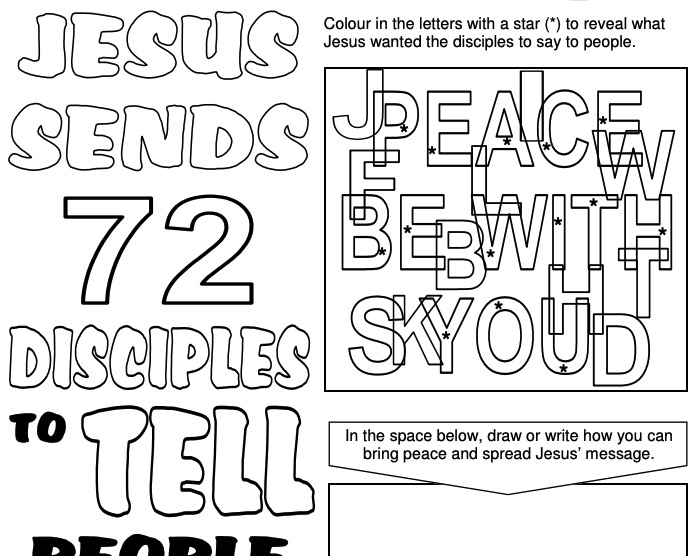 JESUS
SENDS
72
DISCIPLES
TO TELL
PEOPLE
Colour in the letters with a star (*) to reveal what
Jesus wanted the disciples to say to people.
J P* E* A* I C* E* W
F B* E* B L W* I* T* H* T
S K Y* O* H U* D
In the space below, draw or write how you can
bring peace and spread Jesus’ message.